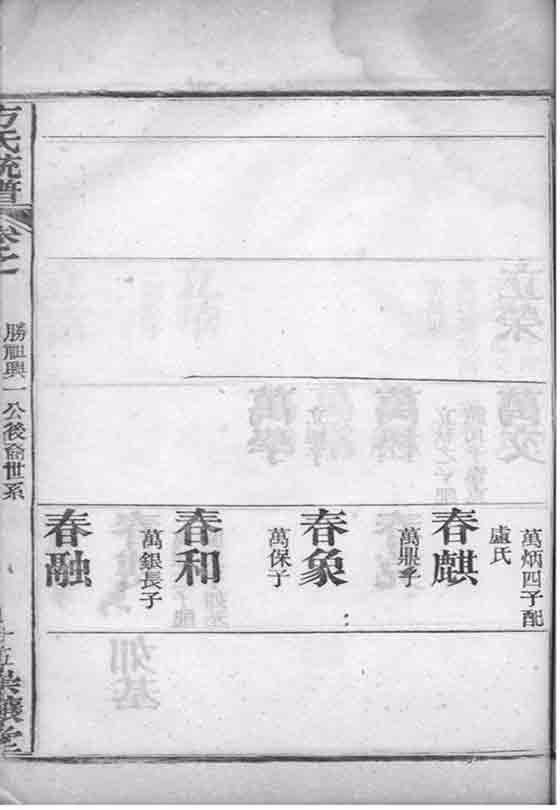 萬炳四子配
盧氏
春麒
萬鼎子
春象
萬保子
春和
萬銀長子
春融
方氏統譜
卷之
勝祖興一公後裔世系